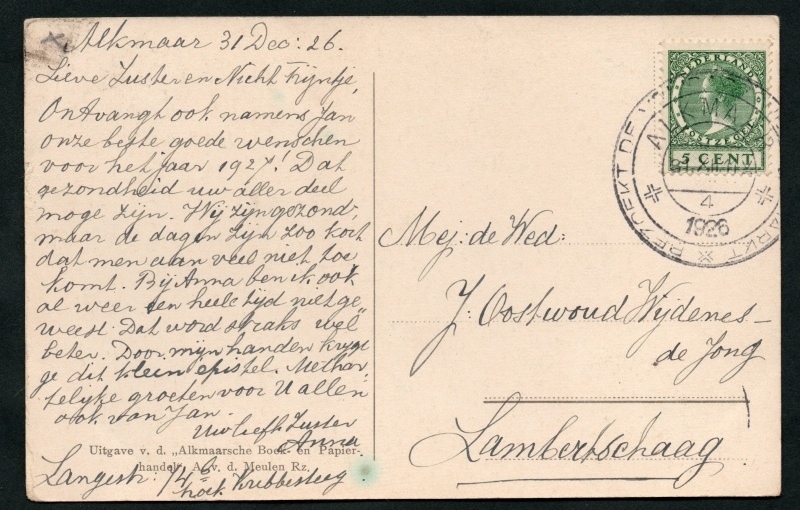 Alkmaar 31 Dec: 26.
Lieve Zuster en Nicht Trijntje,
Ontvangt ook namens Jan
onze beste goede wenschen
voor het jaar 1927! Dat
gezondheid uw aller deel
moge zijn. Wij zijn gezond,
maar de dagen zijn zoo kort
dat men aan veel niet toe
komt. Bij Anna ben ik ook
al weer een heele tijd niet ge
weest. Dat word straks wel
beter. Door mijn handen krijgt
ge dit kleen epistel. Met har
telijke groeten voor U allen
ook van Jan.
Uw liefh. Zuster
Anna
Uitgave v. d. „Alkmaarsche Boek- en Papier-
handel" A. v. d. Meulen Rz.
Langestr.
hoek Krebbesteeg
NEDERLAND
POSTZEGEL
5 CENT
ALKMAAR
4
1926
BEZOEKT DE
MARKT
Mej: de Wed:
J: Oostwoud Wijdenes-
de Jong
Lambertschaag